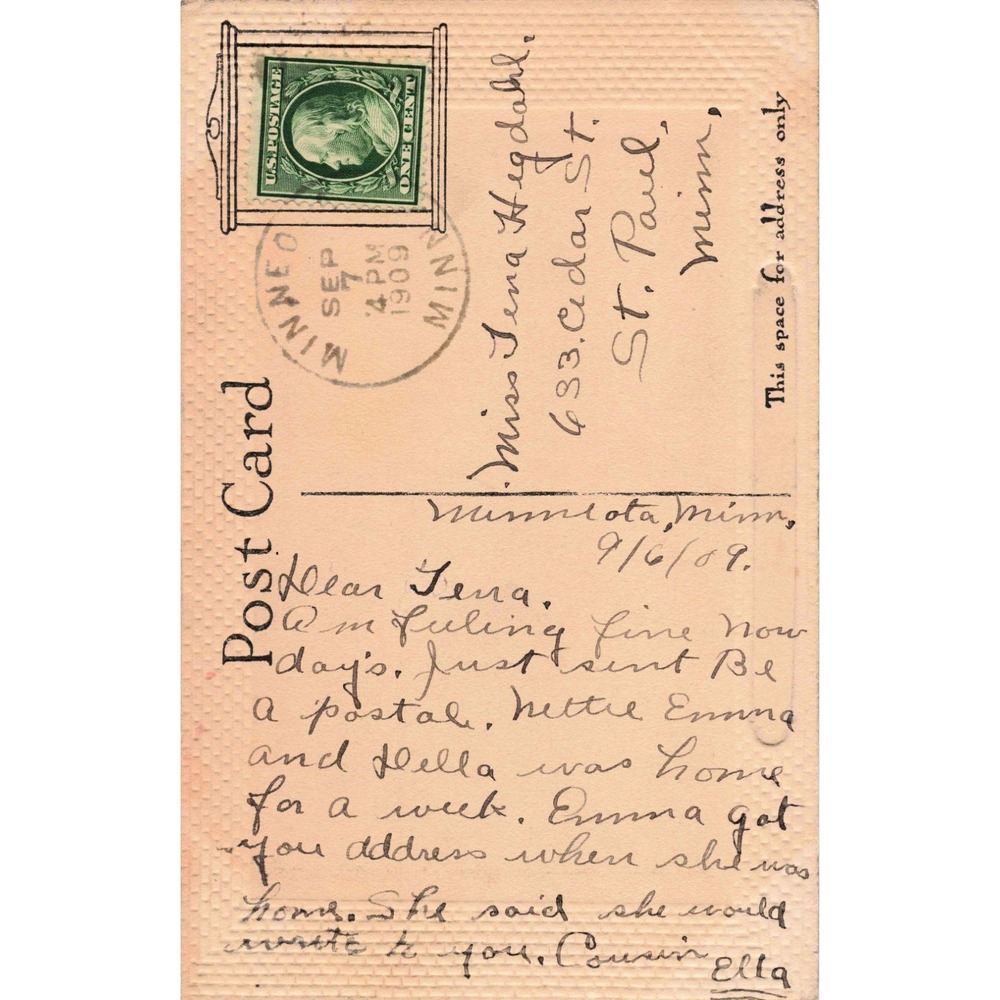 Post Card
U.S. POSTAGE
ONE CENT
MINNEO
SEP
7
4 PM
1909
MINN
Miss Tena Hegdahl.
633. Cedar St.
St. Paul,
Minn,
This space for address only
Minneota, Minn,
9/6/09.
Dear Tena.
Am feeling fine now
day's. Just sent Be
a postal. Nettie Emma
and Della was home
for a week. Emma got
you address when she was
home. She said she would
wrote to you. Cousin
Ella